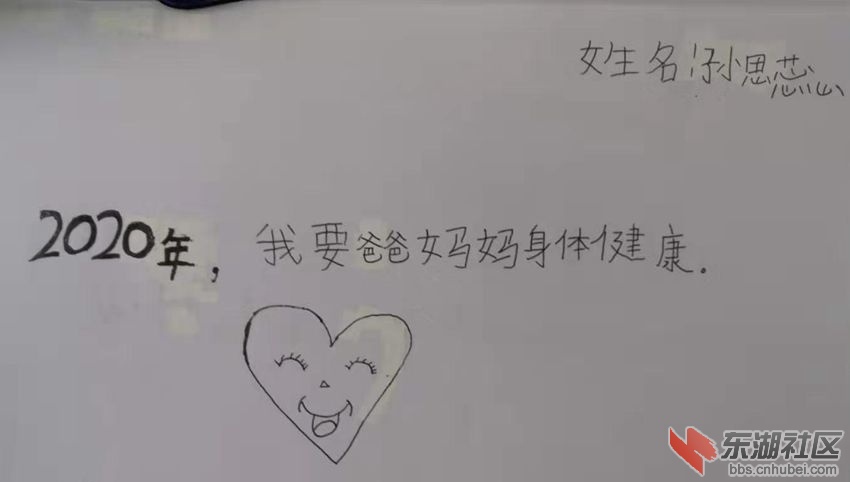 姓名:孙思蕊
2020年,我要爸爸妈妈身体健康.
东湖社区
bbs.cnhubei.com